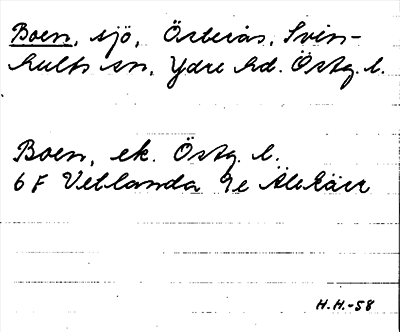 Boen, sjö, Österås, Svin-
hults sn, Ydre hd. Östg. l.
Boen, ek. Östg. l.
6 F Vetlanda 9e Älekärr
H.H.-58